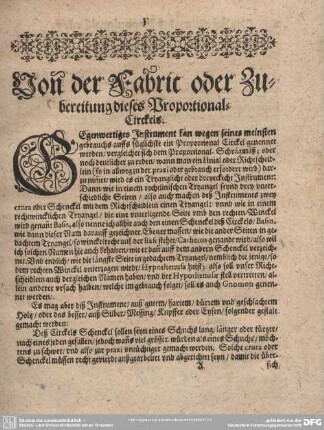 Von der Fabric oder Zu-
bereitung dieses Proportional-
Circkels.
GEgenwertiges Instrument kan wegen seines meinsten
gebrauchs auffs füglichste ein Proportional Circkel genennet
werden/ vergleichet sich dem Proportional- Schrägmäß: oder
noch deutlicher zu reden/ wann man ein linial oder Richscheid-
lein (so in allweg zu der praxi oder gebrauch erfordert wird) dar-
zu nimbt wird es ein Trianglicht oder dreyeckicht Instrument.
Dann wie in einem rechtlinischen Tryangel seynd drey unter-
schiedliche Seiten/ also auch machen diß Instrument zwey
crura oder Schenckel mit dem Richscheidlein einen Tryangel: unnd wie in einem
rechtwinckelichen Tryangel/ die eine unterligende Seite und den rechten Winckel
wird genañt Basis, also nenne ich allhie auch den einen Schenckel deß Circkels/ Basin,
wie dann dieser Nam darauff
dachtem Tryangel/ so winckelrecht auff der Basi stehet Cathetus genandt wird/ also wil
ich solchen Namen hie auch behalten/
net. Und endlich/ wie die längste Seite in gedachtem Tryangel/ nemblich die jenige/ so
dem rechten Winckel unterzogen wird: Hypothenusa heist; also soll unser Richt-
scheidlein auch den gleichen Namen haben/ und der Hypothenusæ stell vertretten; an
den andern unser haben/ welche im gebrauch folget/ soll es auch Gnomon genen-
net werden.
Es mag aber diß Instrument/ auß gutem/ hartem/ dürrem und geschlachtem
Holtz/ oder das besser/ auß Silber/ Messing/ Kupffer oder Eysen/ folgender gestalt
gemacht werden:
Deß Circkels Schenckel sollen seyn eines Schuchs lang/ länger oder kürtzer/
nach eines jeden gefallen/ jedoch wañs viel grösser würden als eines Schuchs/ möch-
tens zu schwer/ und also zur praxi untüchtiger gemacht werden. Solche crura oder
Schenckel müssen recht geviert außgearbeitet und abgerichtet seyn/ damit die über-
A
sich/